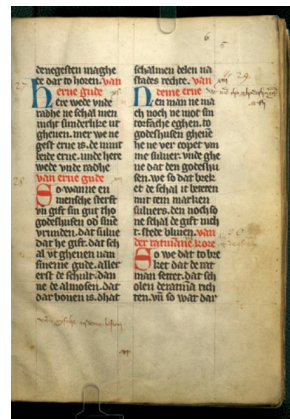 denegesten maghe
e dar to horen. van
erue gude
Ere wede vnde
radhe ne schal men
nicht sunderlike vt
gheuen. mer we ne
gest erue is. de nimt
beide erue. unde here
wede vnde radhe
van erue gude
So wanne en
mensche sterft
vn̄ gift sin gut tho
godeshusen od sine
vrunden. dat sulue
dat he gift. dat sch
al vt gheuen van
sineme gude. aller
erst de schult. dan
ne de almosen. dat
dar bouen is. dhat
schalmen delen na
stades rechte. van
deme erue
Nen man ne ma
ch noch ne mot sin
eghen. to
godeshusen gheuē
he ne ver copet vm
me suluer. vnde ghe
ne dat den godeshu
sen. we so dat brek
et de schal it beteren
mit tein marken
suluers. den noch so
ne schal de gift nich
t. stede bliuen. van
der ratmanne kore
So we dat to bre
ket dat de rat
man settet. dat sch
olen deratmā rich
ten. vn̄ so war dar